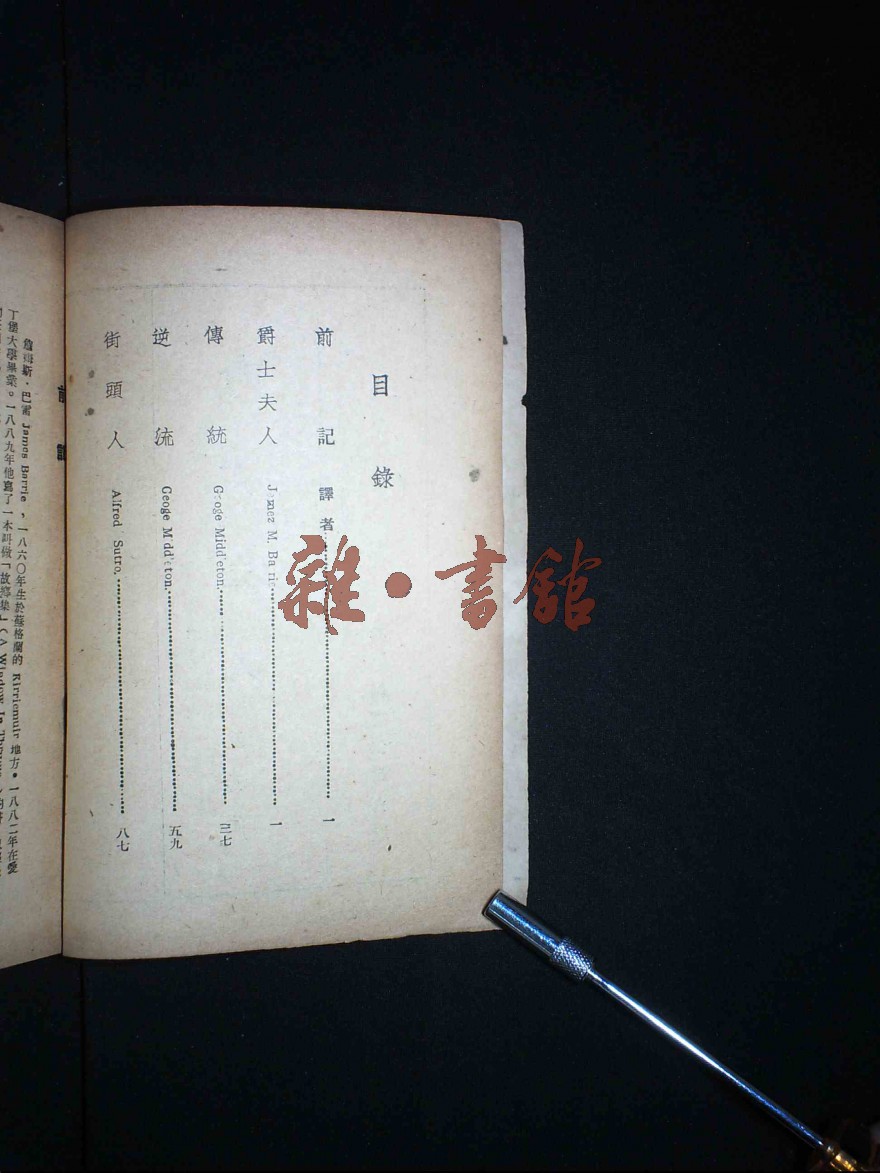 目錄
前記 譯者 一
爵士夫人 一
傳統 Middleton 三七
逆流 Geoge 五九
街頭人 Alfred Sutro 八七
前記
詹姆斯·巴雷 James Barrie,一八六〇年生於蘇格蘭的 地方。一八八二年在愛
丁堡大學畢業。一八八九年他寫了一本叫做「故事集」(A Window In
雜·書館